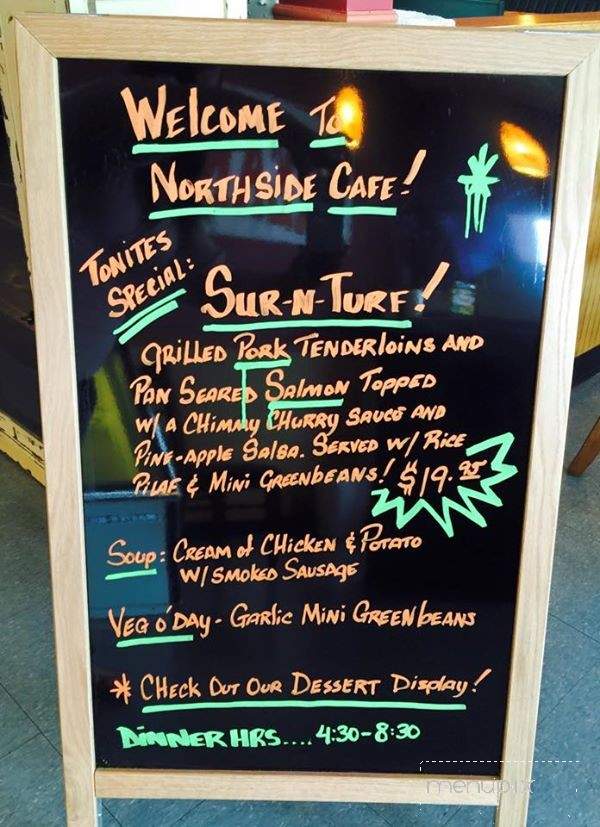 WELCOME TO
NORTHSIDE CAFE!
TONITES
SPECIAL:
SUR-N-TURF!
GRILLED PORK TENDERLOINS AND
PAN SEARED SALMON TOPPED
W/ A CHIMMY CHURRY SAUCE AND
PINE-APPLE SALSA. SERVED W/ RICE
PILAF & MINI GREENBEANS! $19.95
SOUP: CREAM of CHICKEN & POTATO
W/ SMOKED SAUSAGE
VEG O'DAY - GARLIC MINI GREENBEANS
* CHECK OUT OUR DESSERT DISPLAY!
DINNER HRS.... 4:30-8:30
menupix